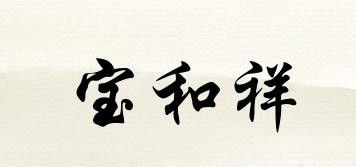 宝和祥